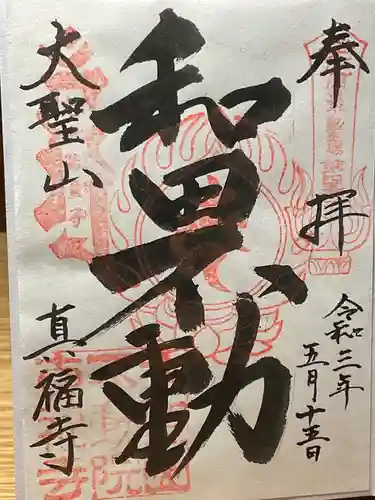 奉拝
令和三年
五月十五日
和田不動
大聖山
真福寺